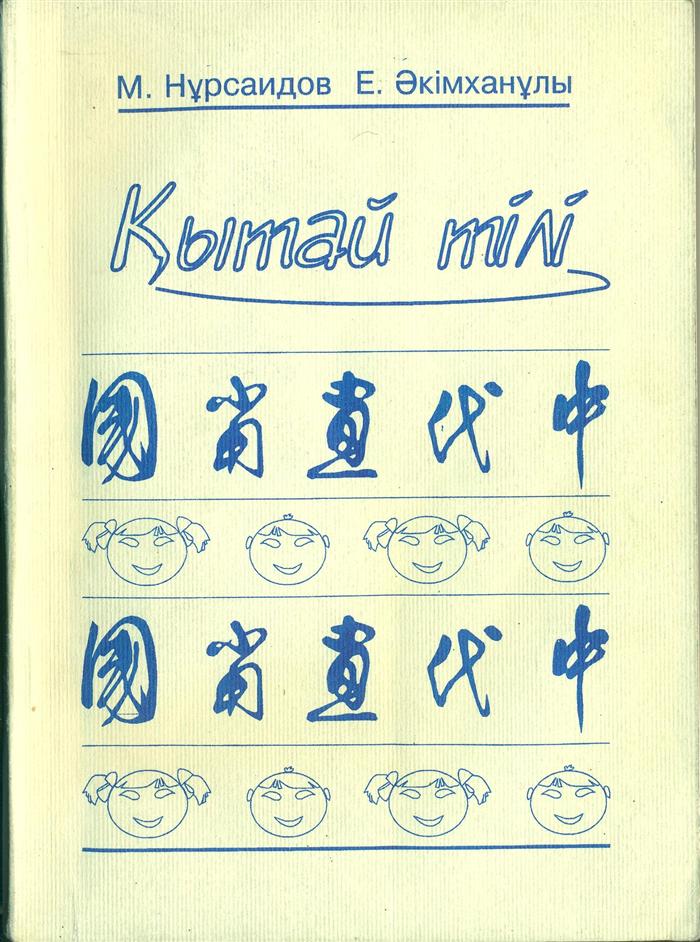 М. Нұрсаидов Е. Әкімханұлы
Қытай тілі
國 當 直 代 中
國 當 直 代 中